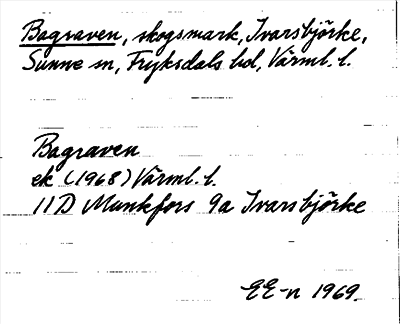 Bagraven, skogsmark, Ivarsbjörke,
Sunne sn, Fryksdals hd, Värml. l.
Bagraven
ek (1968) Värml. l.
11D Munkfors 9a Ivarsbjörke
EE-n 1969.